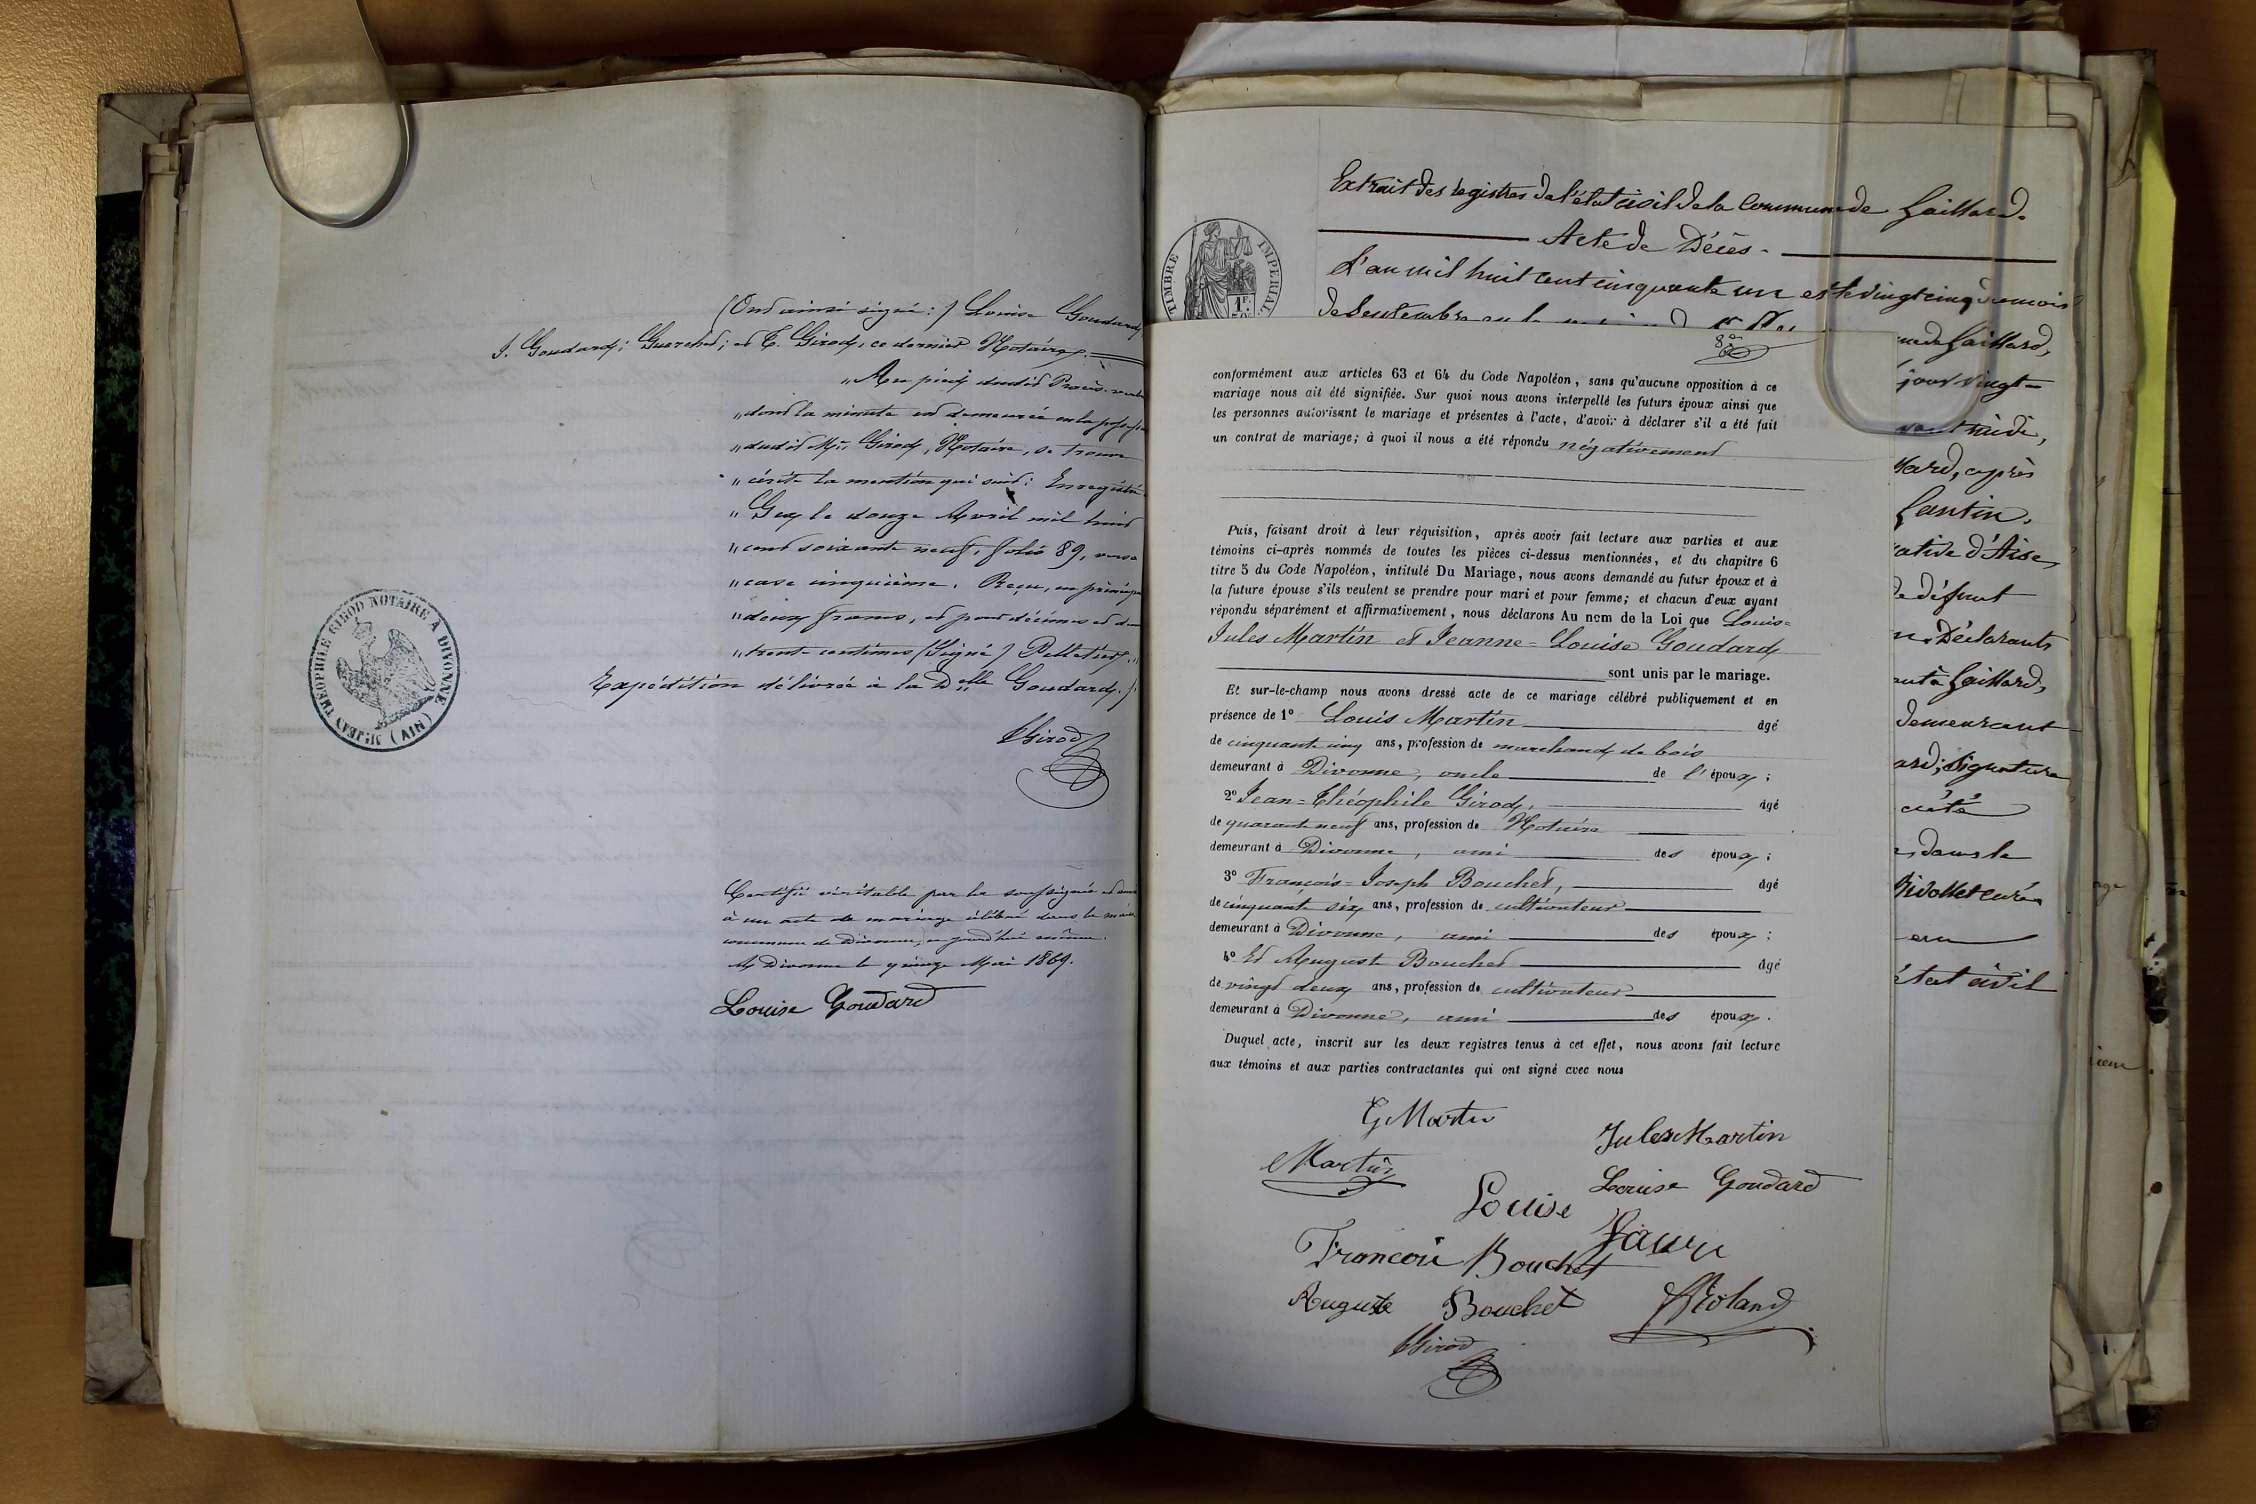 (Ont ainsi signé :) Louise Goudard,
J. Goudard; Guerchet; et T. Girod, ce dernier Notaire.
„ Au pied dudit Procès-verbal
„ dont la minute est demeurée en la possession
„ dudit Me. Girod, Notaire, se trouve
„ écrite la mention qui suit: Enregistré
„ Gex le douze Avril mil huit
„ cent soixante neuf, folio 89, verso
„ case cinquième. Reçu, en principal
„ deux francs, et pour décimes et demi
„ trente centimes (Signé) Pelletier. „
Expédition délivrée à la Delle Goudard.
TGirod
Mr. JEAN THEOPHILE GIROD NOTAIRE A DIVONNE (AIN)
Certifié véritable par la soussignée et annexé
à un acte de mariage célébré dans la mairie
commune de Divonne, aujourd'hui même.
A Divonne le quinze Mai 1869.
Louise Goudard
Extrait des registres de l'état civil de la Commune de Gaillard.
Acte de Décès.
TIMBRE IMPERIAL
1F.
L'an mil huit cent cinquante un et le vingt cinq du mois
de Septembre
de Gaillard,
jour vingt-
midi,
après
Gantin.
d'Aise,
défunt
Déclarants
Gaillard,
demeurant
signature
dans le
Rivollet curé
état civil
conformément aux articles 63 et 64 du Code Napoléon, sans qu'aucune opposition à ce
mariage nous ait été signifiée. Sur quoi nous avons interpellé les futurs époux ainsi que
les personnes autorisant le mariage et présentes à l'acte, d'avoir à déclarer s'il a été fait
un contrat de mariage; à quoi il nous a été répondu négativement
Puis, faisant droit à leur réquisition, après avoir fait lecture aux parties et aux
témoins ci-après nommés de toutes les pièces ci-dessus mentionnées, et du chapitre 6
titre 5 du Code Napoléon, intitulé Du Mariage, nous avons demandé au futur époux et à
la future épouse s'ils veulent se prendre pour mari et pour femme; et chacun d'eux ayant
répondu séparément et affirmativement, nous déclarons Au nom de la Loi que Louis=
Jules Martin et Jeanne=Louise Goudard
sont unis par le mariage.
Et sur-le-champ nous avons dressé acte de ce mariage célébré publiquement et en
présence de 1° Louis Martin âgé
de cinquante cinq ans, profession de marchand de bois
demeurant à Divonne, oncle de l'époux;
2° Jean=Théophile Girod, âgé
de quarante neuf ans, profession de Notaire
demeurant à Divonne, ami des époux;
3° François=Joseph Bouchet, âgé
de cinquante six ans, profession de cultivateur
demeurant à Divonne, ami des époux;
4° Et August Bouchet âgé
de vingt deux ans, profession de cultivateur
demeurant à Divonne, ami des époux.
Duquel acte, inscrit sur les deux registres tenus à cet effet, nous avons fait lecture
aux témoins et aux parties contractantes qui ont signé avec nous
G Martin
Jules Martin
Martin
Louise Goudard
Louise
François Bouchet
Auguste Bouchet
Roland
TGirod